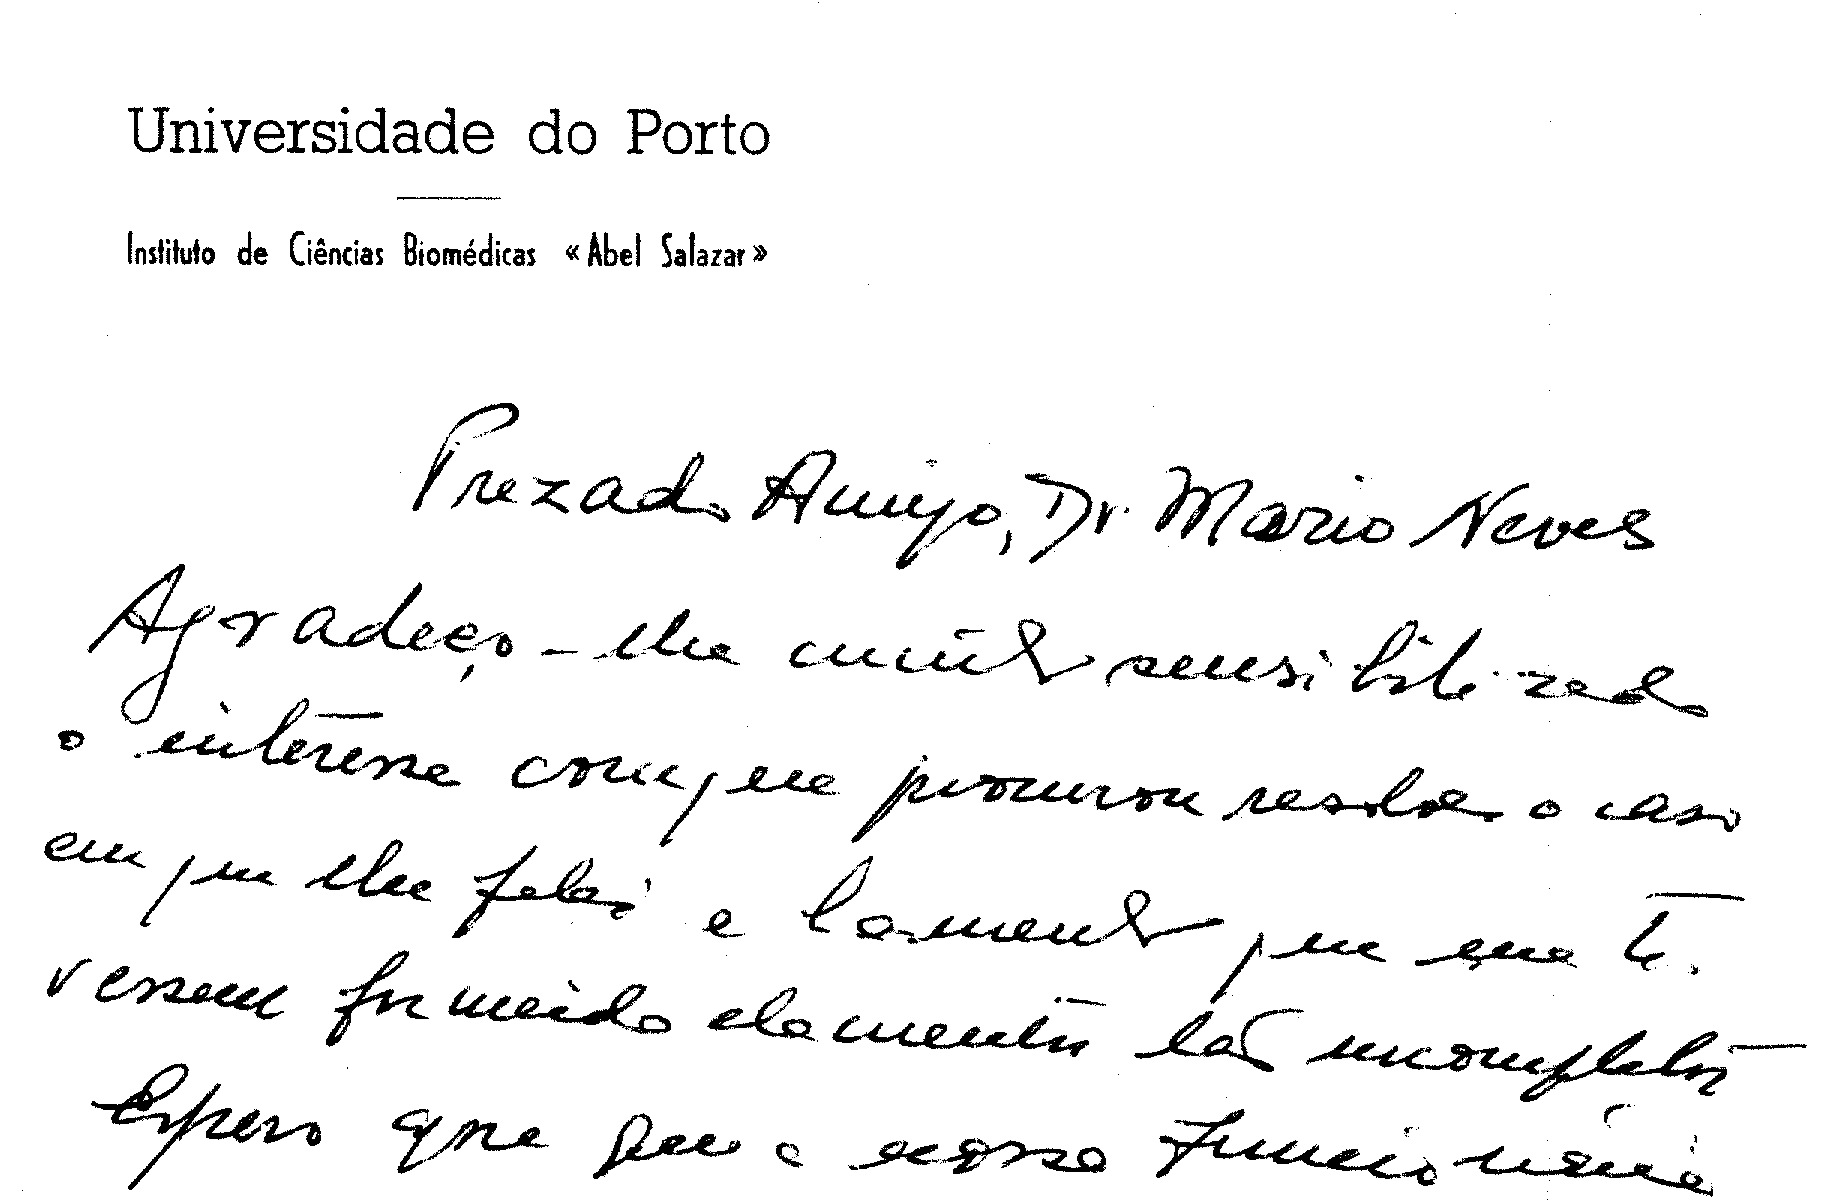 Universidade do Porto
Instituto de Ciências Biomédicas «Abel Salazar»
Prezado Amigo, Dr. Mario Neves
Agradeço-lhe muito sensibilizado
o interesse com que procurou resolver o caso
em que lhe falei e lamento que me ti-
vessem fornecido elementos tão incompletos
Espero que a nossa funcionária